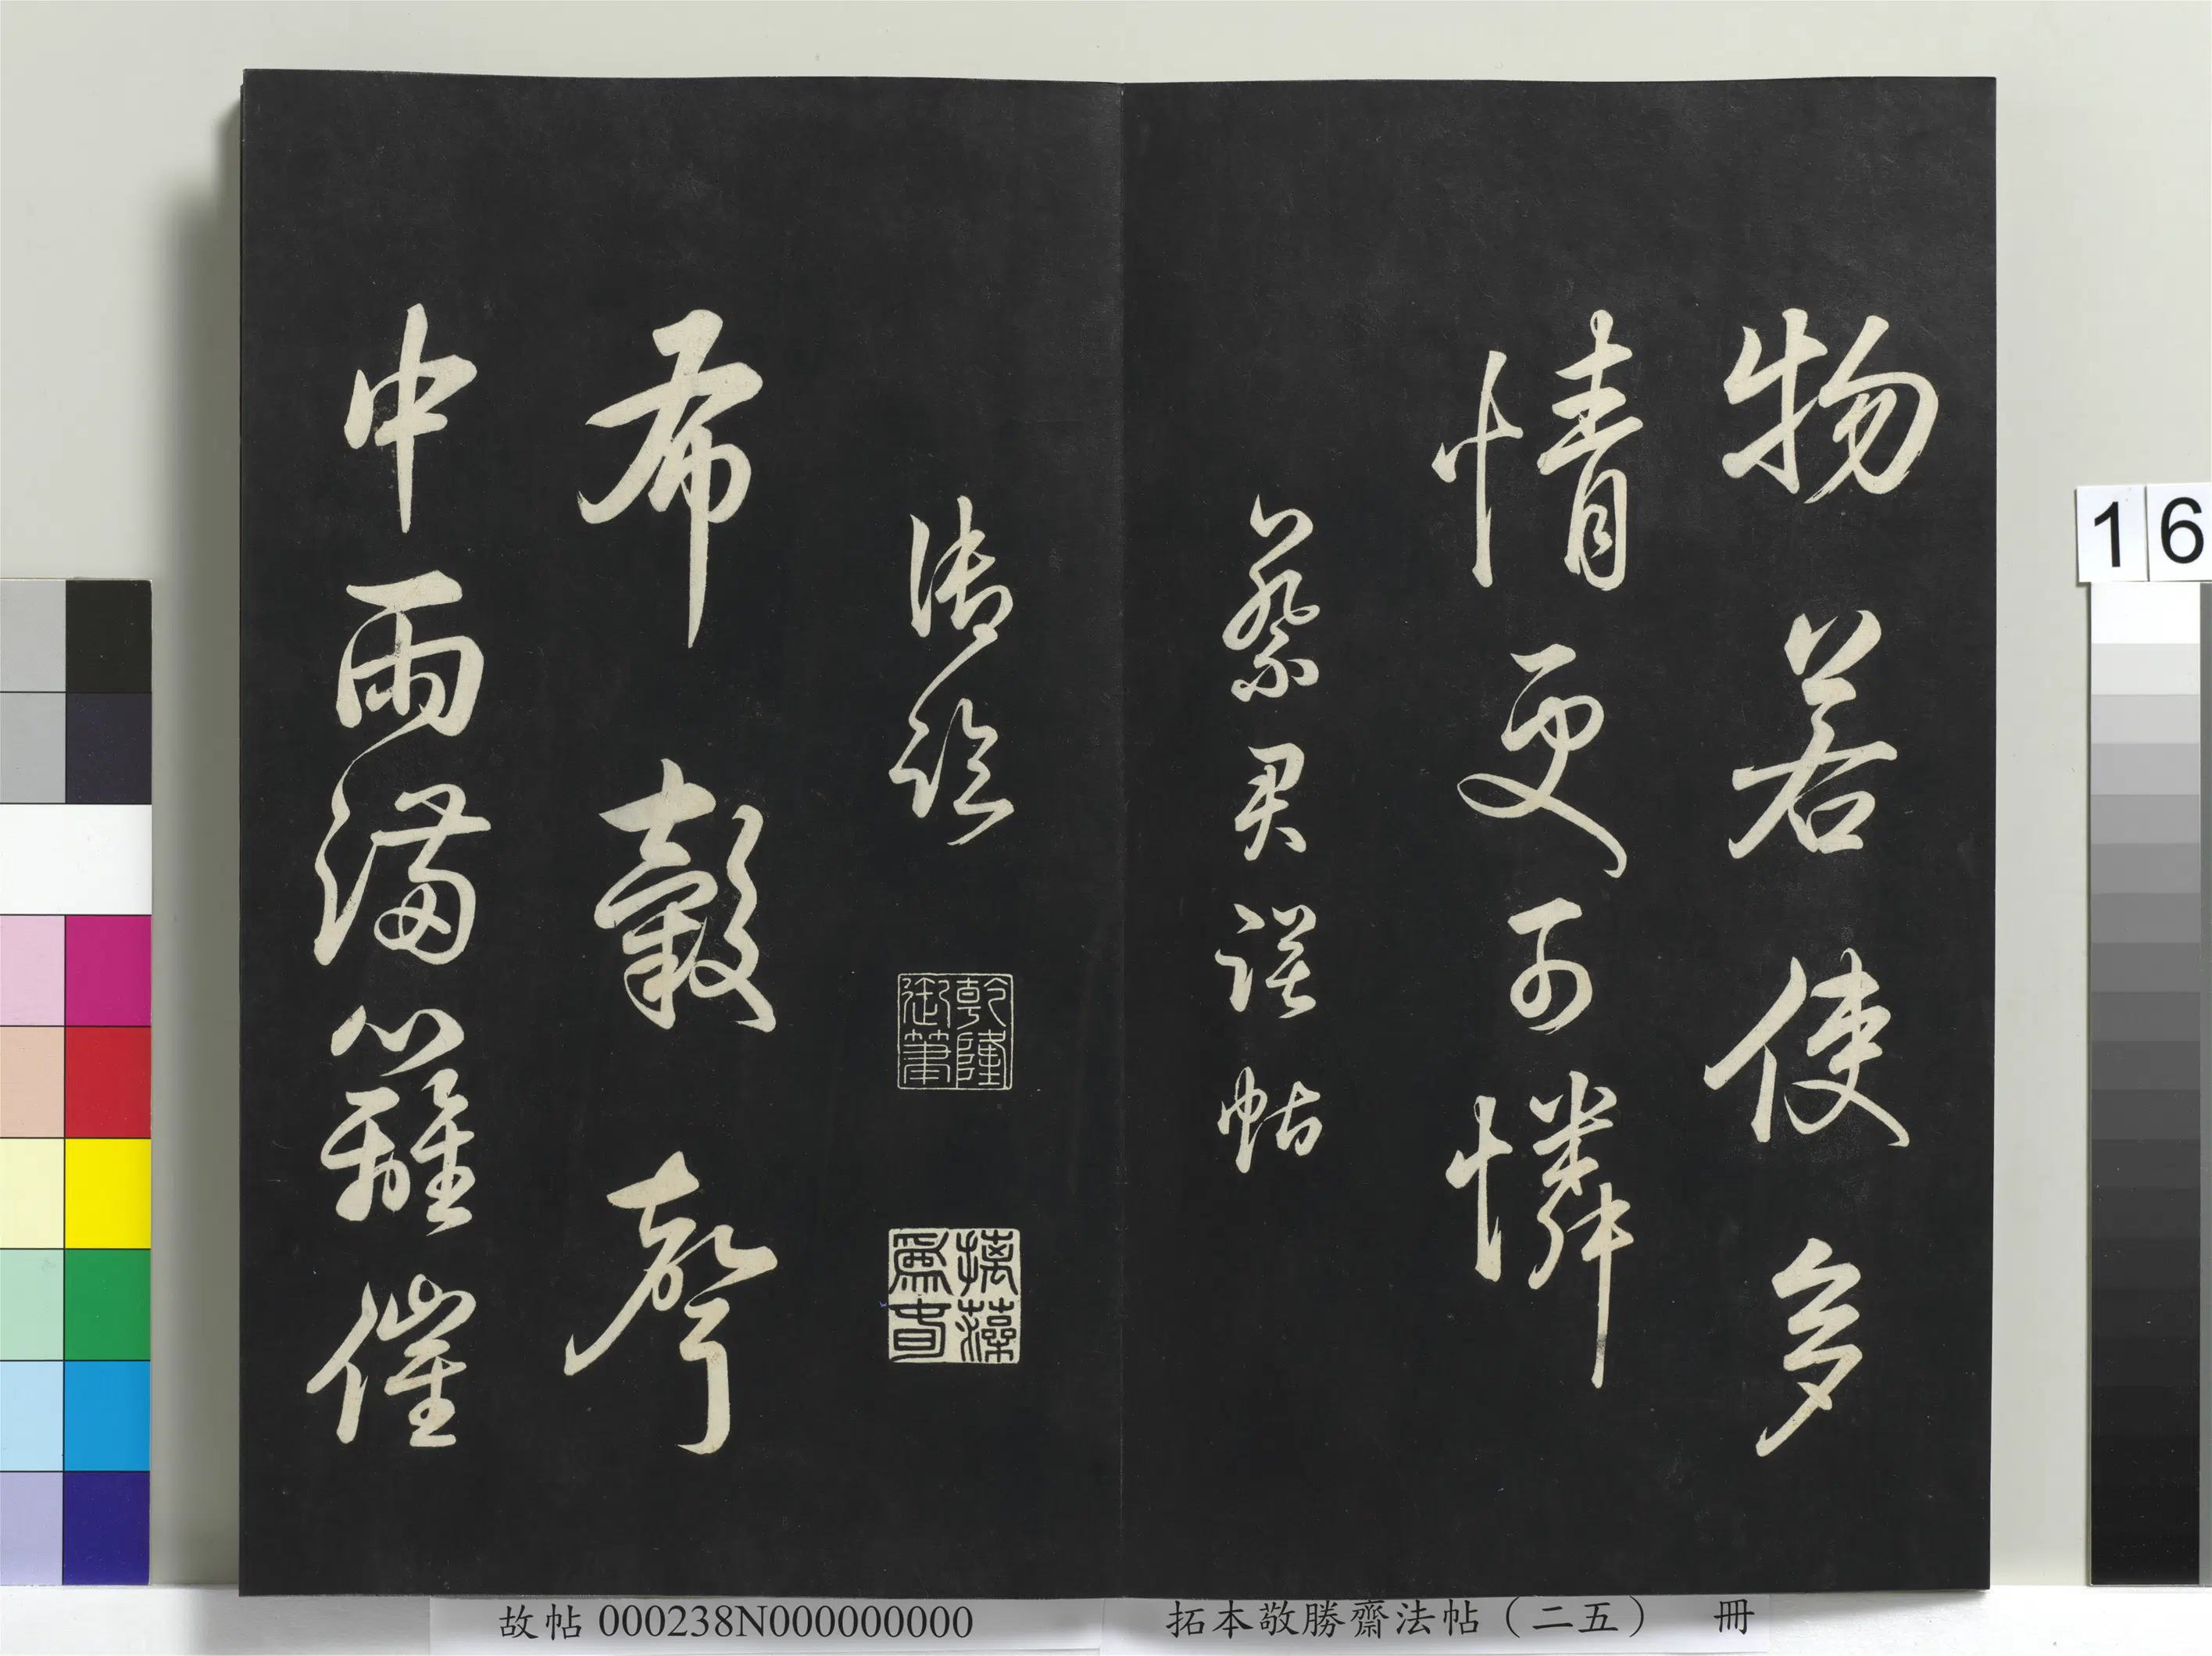 物若使多
情更可憐
蔡君謨帖
御臨
乾隆御筆
摛藻為春
布穀聲
中雨滿籬催
16
故帖 000238N000000000
拓本敬勝齋法帖（二五） 冊